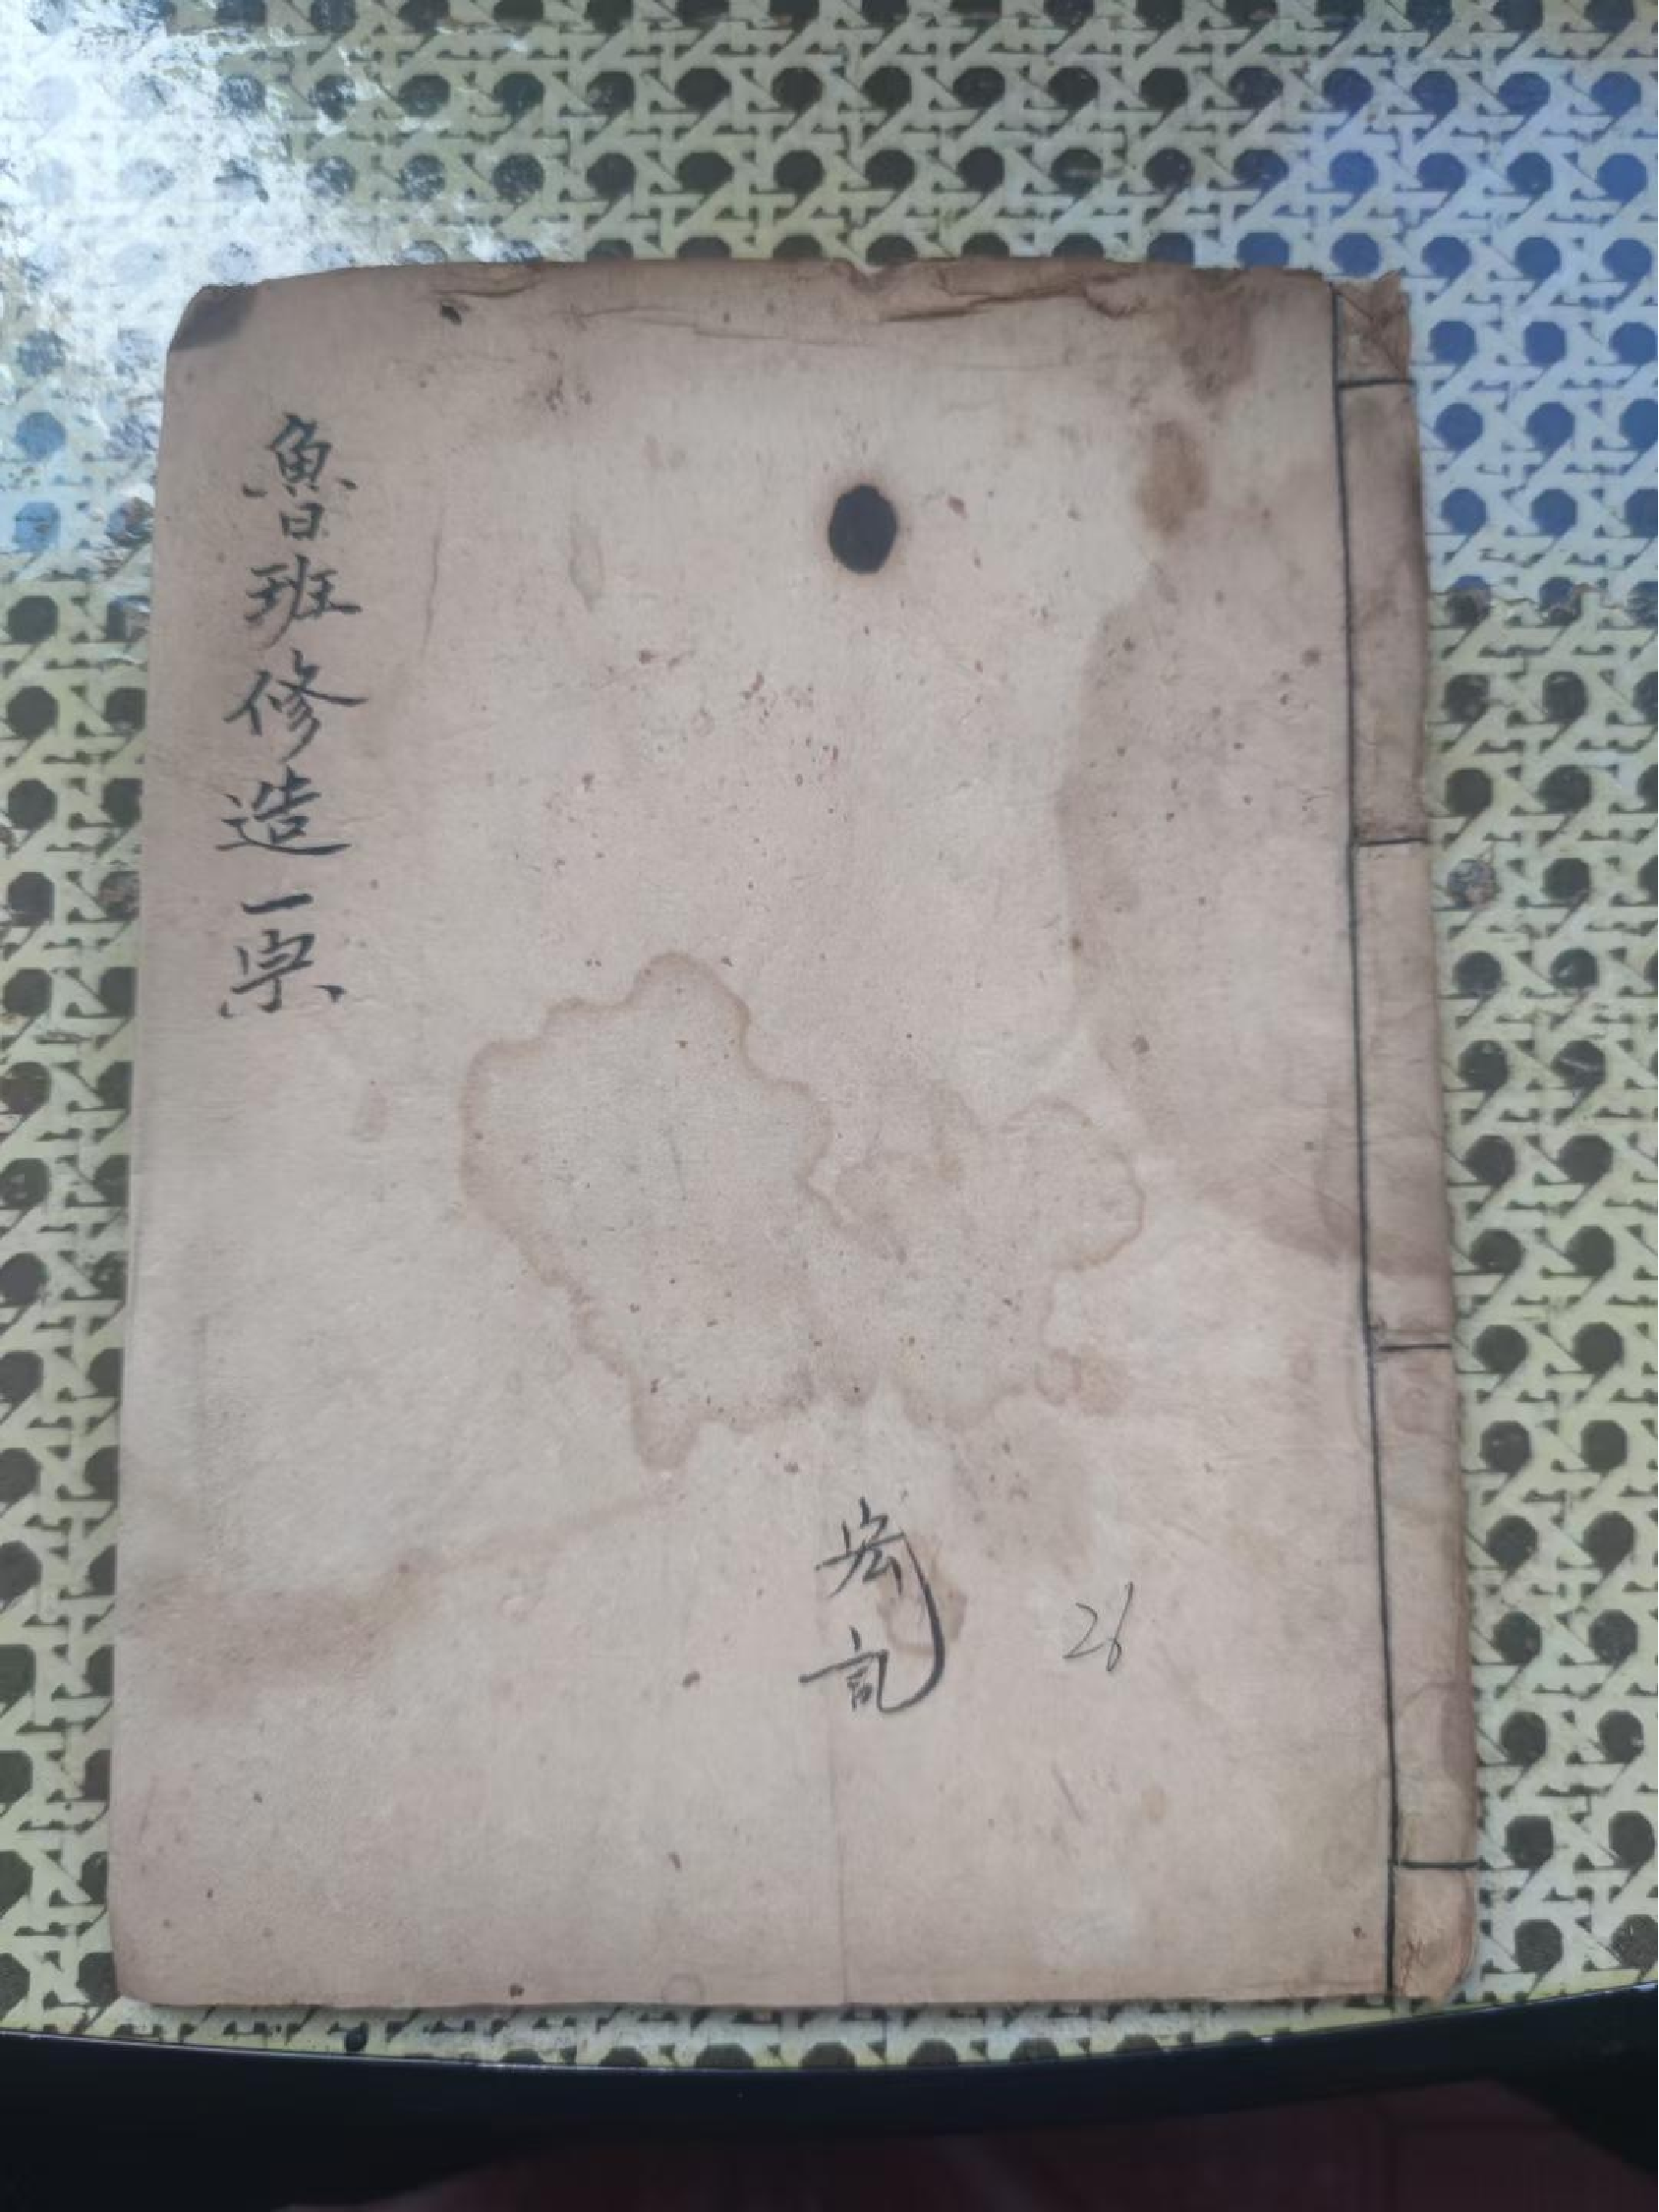 魯班修造一宗
宏記
26